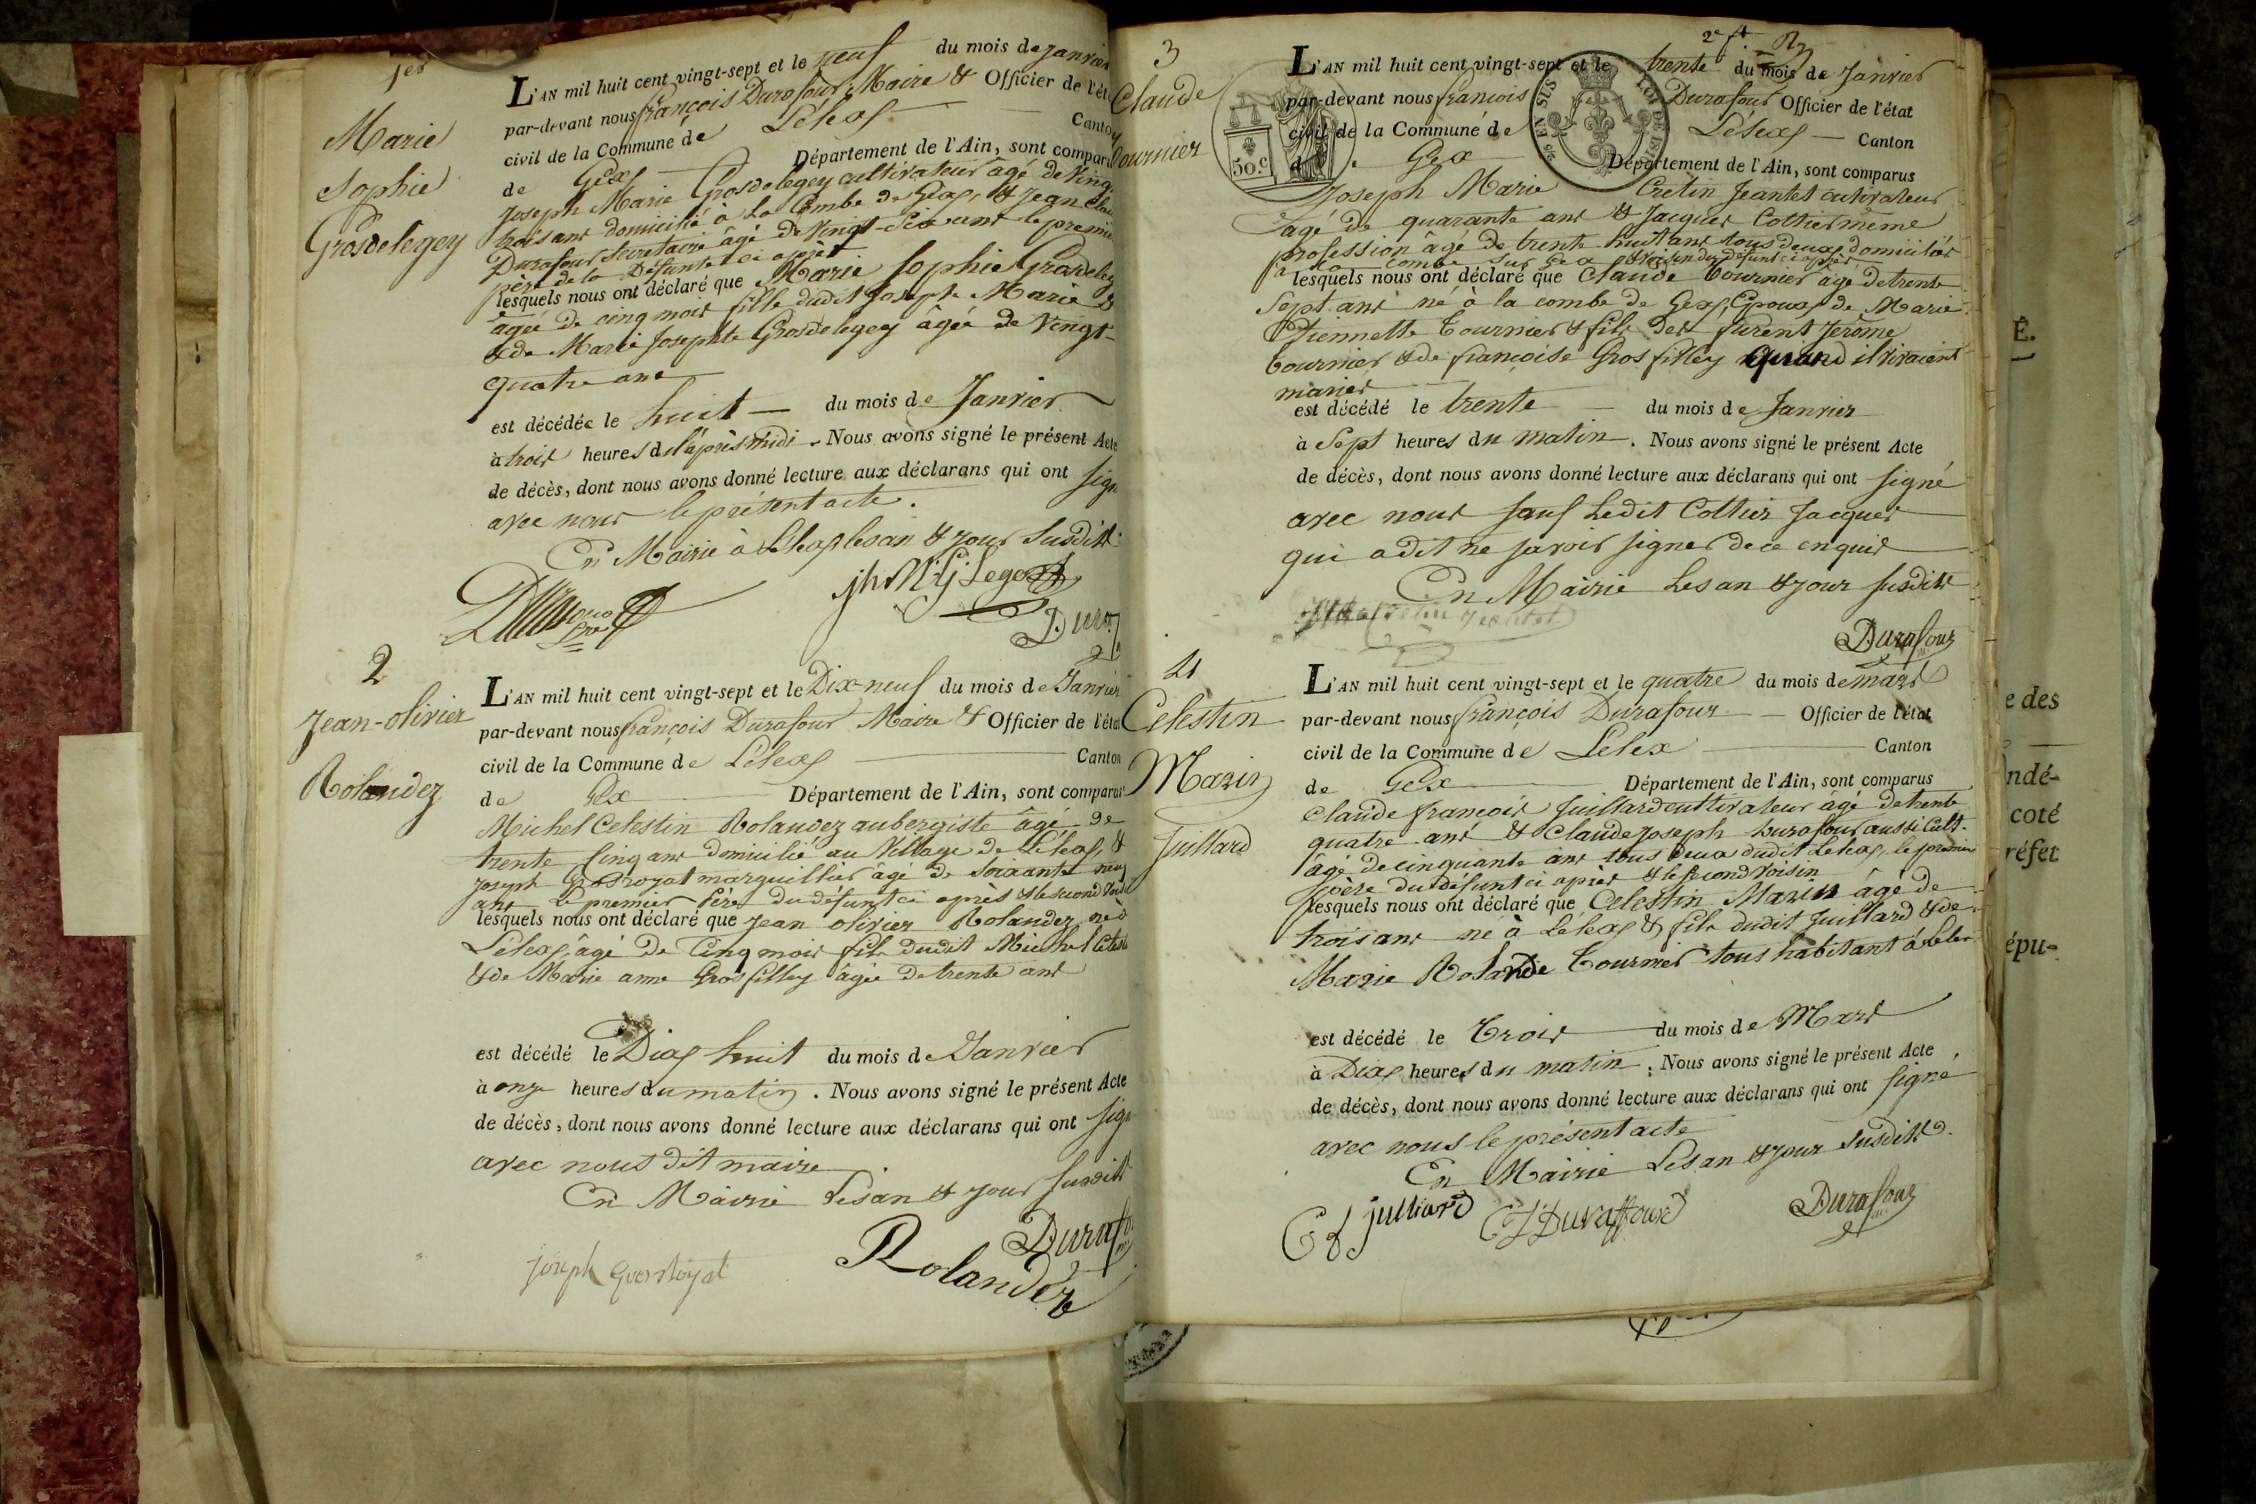 1er
Marie
Sophie
Grosdelegey
L'AN mil huit cent vingt-sept et le neuf du mois de Janvier
par-devant nous françois Durafour Maire & Officier de l'ét
civil de la Commune de Lélex Canton
de Gex Département de l'Ain, sont compar
Joseph Marie Grosdelegey cultivateur âgé de Vingt
trois ans domicilié à la Combe de Gex, & Jean Clau
Durafour Secrétaire âgé de Vingt-Six ans le premie
père de la Défunte ci après
lesquels nous ont déclaré que Marie Sophie Grosdelegey
âgée de cinq mois fille dudit Joseph Marie
& de Marie Josephte Grosdelegey âgée de Vingt-
quatre ans
est décédée le huit du mois de Janvier
à trois heures de l'après midi. Nous avons signé le présent Acte
de décès, dont nous avons donné lecture aux déclarans qui ont sign
avec nous le présent acte.
En Mairie à Lélex les an & jour Susdits
jh M: G: Legey
Duraf
2
Jean-olivier
Rolandez
L'AN mil huit cent vingt-sept et le Dix-neuf du mois de Janvier
par-devant nous françois Durafour Maire & Officier de l'état
civil de la Commune de Lélex Canton
de Gex Département de l'Ain, sont comparus
Michel Celestin Rolandez aubergiste âgé de
trente Cinq ans domicilié au Village de Lélex, &
Joseph Grosroyat marguillier age de Soixante neuf
ans le premier Père du défunt ci après & le second Voisin
lesquels nous ont déclaré que Jean olivier Rolandez né à
Lélex, âgé de Cinq mois fils dudit Michel Celestin
& de Marie anne Grosfilley âgée de trente ans
est décédé le Dix huit du mois de Janvier
à onze heures du matin. Nous avons signé le présent Acte
de décès, dont nous avons donné lecture aux déclarans qui ont sign
avec nous dit maire.
En Mairie Les an & jour susdits
Durafo
joseph Grosroyat
Rolandez
3
Claude
tournier
2e ft.
L'AN mil huit cent vingt-sept et le trente du mois de Janvier
par-devant nous françois Durafour Officier de l'état
civil de la Commune de Lélex Canton
de Gex Département de l'Ain, sont comparus
50.c
EN SUS
Joseph Marie Cretin Jeantet cultivateur
âgé de quarante ans & Jacques Cottier même
profession âgé de trente huit ans tous deux domiciliés
à la combe sur Gex voisin du défunt ci après
lesquels nous ont déclaré que Claude tournier âgé de trente
Sept ans né à la combe de Gex, Epoux de Marie
Etiennette tournier & fils des furent Jerôme
tournier & de françoise Grosfilley quand il vivaient
mariés
est décédé le trente du mois de Janvier
à Sept heures du matin. Nous avons signé le présent Acte
de décès, dont nous avons donné lecture aux déclarans qui ont signé
avec nous sauf Ledit Cottier Jacques
qui a dit ne savoir signer de ce enquis
En Mairie Les an & jour susdits
Cretin Jeantet
Durafour
4
Celestin
Marin
Juillard
L'AN mil huit cent vingt-sept et le quatre du mois de mars
par-devant nous françois Durafour Officier de l'état
civil de la Commune de Lélex Canton
de Gex Département de l'Ain, sont comparus
Claude françois Juillard cultivateur âgé de trente
quatre ans & Claude Joseph Durafour aussi Cult.
âgé de cinquante ans tous deux dudit Lélex, le premier
père du défunt ci après & le second voisin
lesquels nous ont déclaré que Celestin Marin âgé de
trois ans né à Lélex & fils dudit Juillard & de
Marie Rolande Tournier tous habitant à Lelex
est décédé le Trois du mois de Mars
à Dix heures du matin. Nous avons signé le présent Acte
de décès, dont nous avons donné lecture aux déclarans qui ont signé
avec nous le présent acte
En Mairie Les an & jour susdits.
C f julliard
C J Duraffourd
Durafour
Ê.
e des
ndé-
coté
réfet
épu-